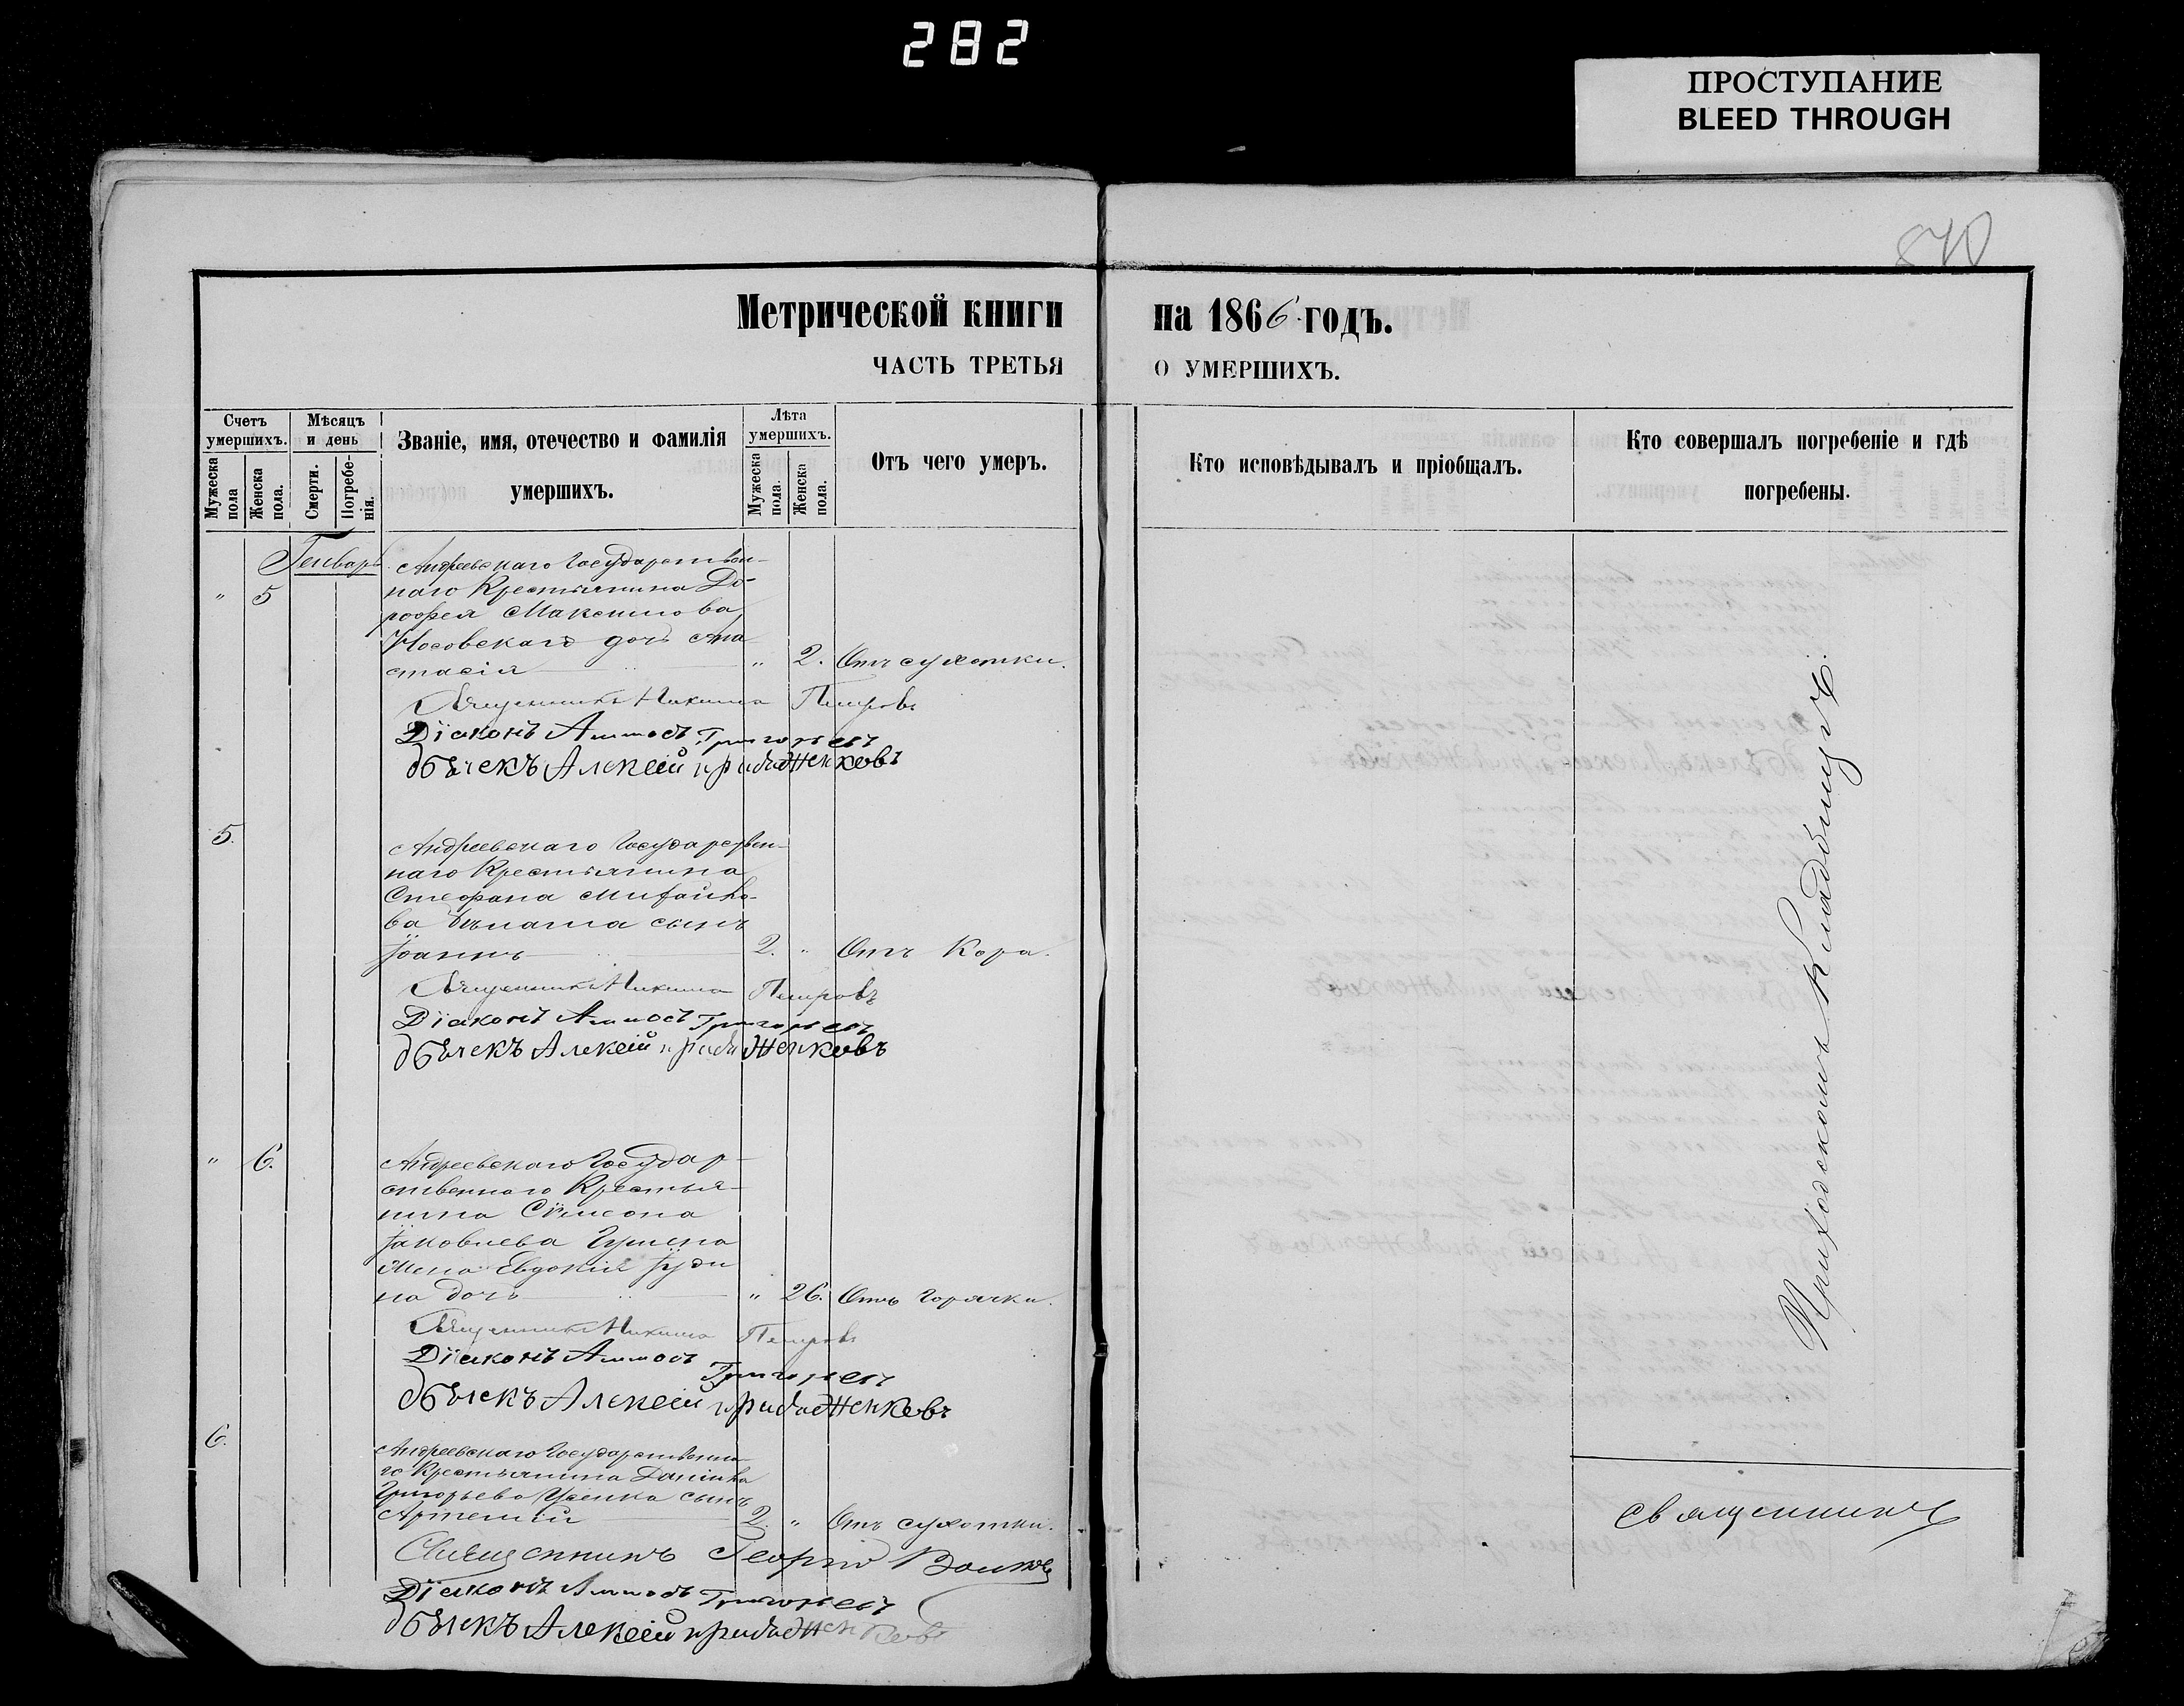 282
ПРОСТУПАНИЕ
BLEED THROUGH
Метрической книги
на 1866 годъ.
ЧАСТЬ ТРЕТЬЯ
О УМЕРШИХЪ.
Счетъ умершихъ.
Мужеска пола
Женска пола.
Мѣсяцъ и день
Смерти.
Погребенія.
Званіе, имя, отечество и фамилія
умершихъ.
Лѣта умершихъ.
Мужеска пола.
Женска пола.
Отъ чего умеръ.
Кто исповѣдывалъ и пріобщалъ.
Кто совершалъ погребеніе и гдѣ
погребены.
Генварь
Андреевскаго Государствен-
" 5 наго Крестьянина До-
рофея Максимова
Носовскаго дочь Ана
стасія " 2. Отъ сухотки.
Священникъ Никита Петровъ
Діаконъ Аммосъ Григорьевъ
Дьячекъ Алексѣй
5. Андреевскаго Государствен-
наго Крестьянина
Стефана Михайло-
ва сынъ
Іоаннъ 2. " Отъ Кора.
Священникъ Никита Петровъ
Діаконъ Аммосъ Григорьевъ
Дьячекъ Алексѣй
" 6. Андреевскаго Государ-
ственнаго Крестья-
нина Сѵмеона
Іаковлева
жена Евдокія Іуди
на дочь " 26. Отъ горячки.
Священникъ Никита Петровъ
Діаконъ Аммосъ Григорьевъ
Дьячекъ Алексѣй
6. Андреевскаго Государственна-
го Крестьянина Даніила
Григорьева Усенка сынъ
Артемій 2. " Отъ сухотки.
Священникъ Георгій
Діаконъ Аммосъ Григорьевъ
Дьячекъ Алексѣй
Приходскомъ Кладбищѣ.
священникъ